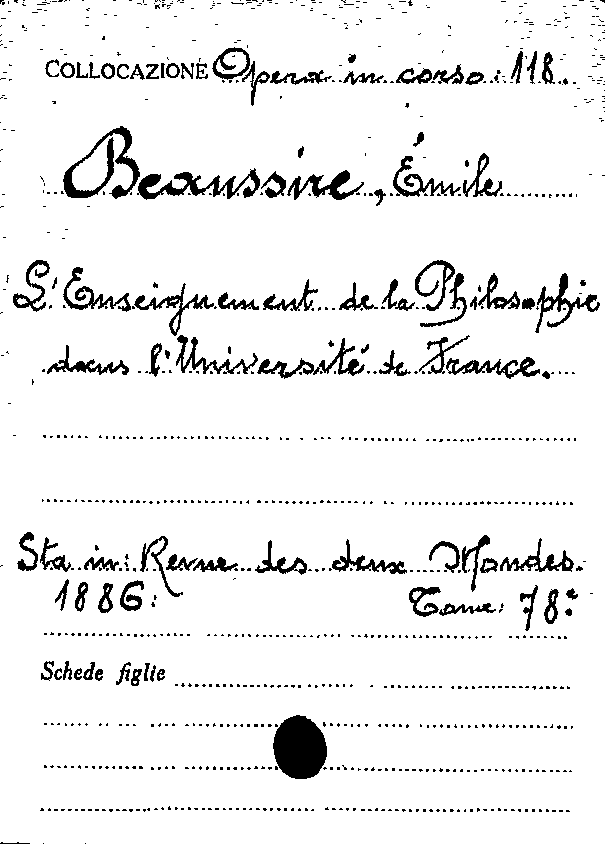 COLLOCAZIONE Opera in corso: 118.
Beaussire, Émile
L'Enseignement de la Philosophie
dans l'Université de France.
Sta in: Revue des deux Mondes.
1886: Tome: 78.º
Schede figlie